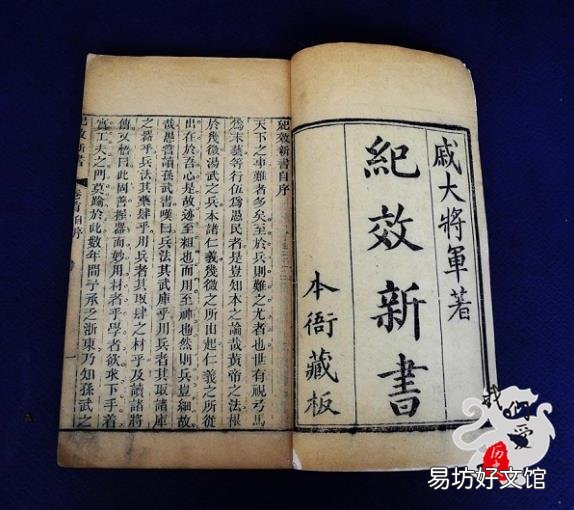 戚大將軍著
紀效新書
本衙藏板
紀效新書自序
天下之事難者多矣至於兵則難之尤者也世有視弓馬
為末藝等行伍為愚民者是豈知本之論哉黃帝之法根
於幾微湯武之兵本諸仁義幾微之所由起仁義之所從
出在於吾心是故迹至粗也而用至神也然則兵豈細故
哉愚嘗讀孫武書嘆曰兵法其武庫乎用兵者其取諸庫
之器乎兵法其藥肆乎用兵者其取肆之材乎及讀諸將
傳又悟曰此固善握器而妙用材者乎學者欲求下手着
實工夫之門莫踰於此數年間予承乏浙東乃知孫武之
紀效新書 卷首自序 一
我们爱
历史
易坊好文馆